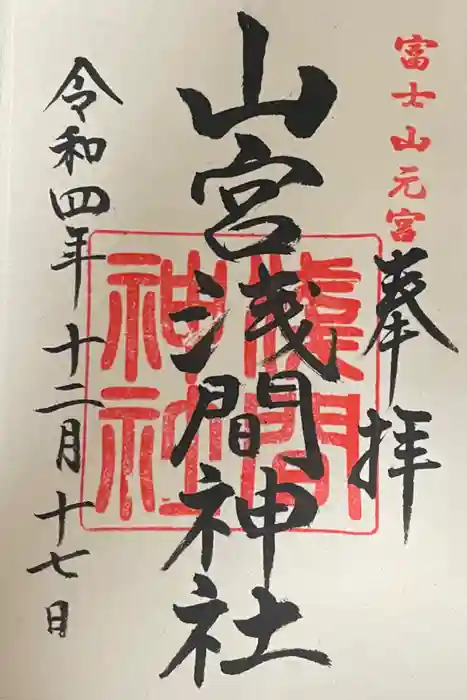 富士山元宮
奉拝
山宮浅間神社
淺間神社
令和四年十二月十七日